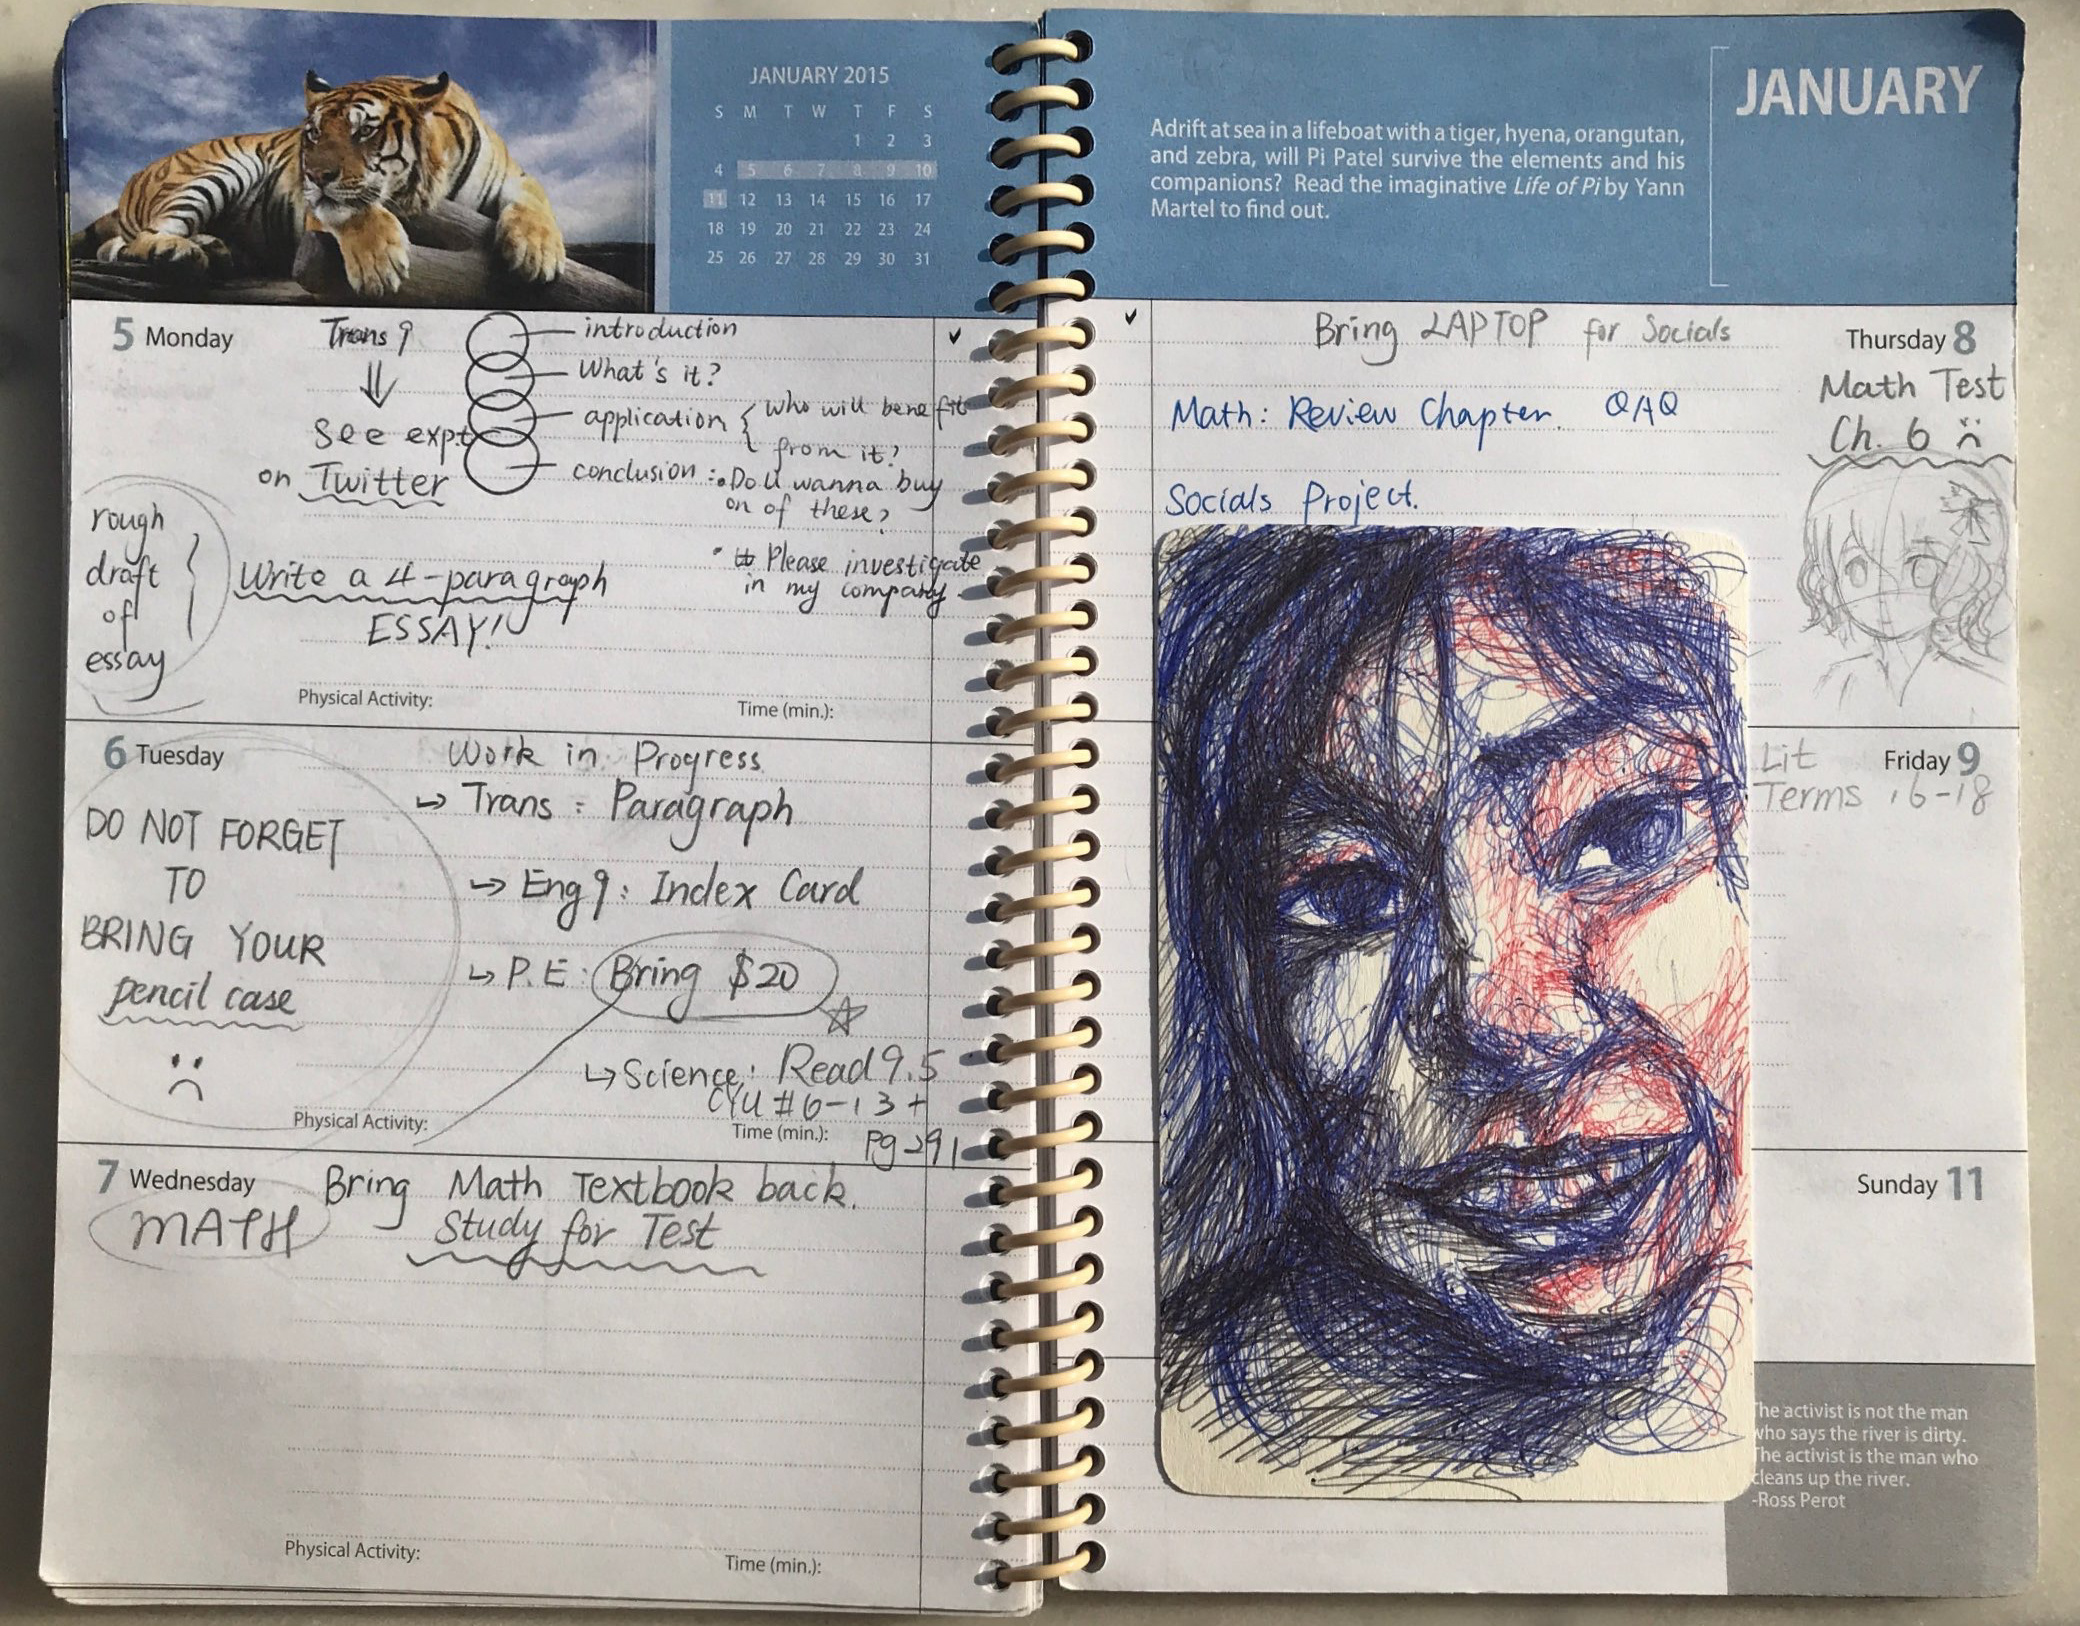 JANUARY 2015
S M T W T F S
1 2 3
4 5 6 7 8 9 10
11 12 13 14 15 16 17
18 19 20 21 22 23 24
25 26 27 28 29 30 31
5 Monday
Trans 9
introduction
What's it?
application { who will benefit
from it?
conclusion : • Do U wanna buy
on of these?
• Please investigate
in my company.
See expt
on Twitter
rough
draft
of
essay
Write a 4-paragraph
ESSAY!
Physical Activity:
Time (min.):
6 Tuesday
DO NOT FORGET
TO
BRING YOUR
pencil case
Work in Progress
↳ Trans: Paragraph
↳ Eng 9: Index Card
↳ P.E: Bring $20
↳ Science: Read 9.5
CYU #6-13 +
Pg 291
Physical Activity:
Time (min.):
7 Wednesday
MATH
Bring Math Textbook back.
Study for Test
Physical Activity:
Time (min.):
JANUARY
Adrift at sea in a lifeboat with a tiger, hyena, orangutan,
and zebra, will Pi Patel survive the elements and his
companions? Read the imaginative Life of Pi by Yann
Martel to find out.
Thursday 8
Bring LAPTOP for Socials
Math: Review Chapter. QAQ
Socials Project.
Math Test
Ch. 6 :(
Friday 9
Lit
Terms 16-18
Sunday 11
The activist is not the man
who says the river is dirty.
The activist is the man who
cleans up the river.
-Ross Perot